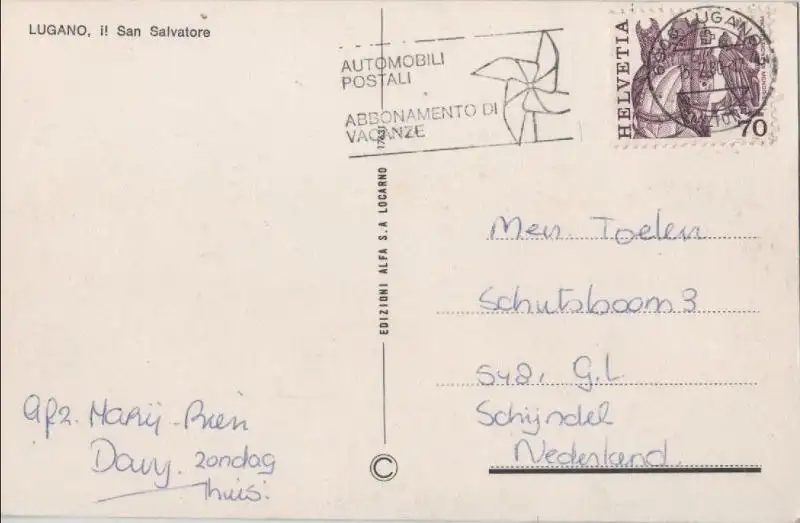 LUGANO, il San Salvatore
AUTOMOBILI
POSTALI
ABBONAMENTO DI
VACANZE
HELVETIA
6900 LUGANO
70
EDIZIONI ALFA S.A LOCARNO
Men. Toelen
Schutsboom 3
5481 G.L
Schijndel
Nederland
Afz. Marij-Rien
Davy. zondag
thuis.
©